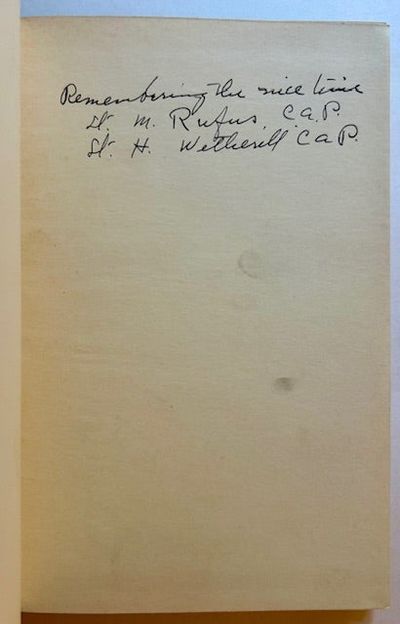 Remembering the nice time
Lt. M. Rufus, C.A.P.
Lt. H. Wetherill C A P.